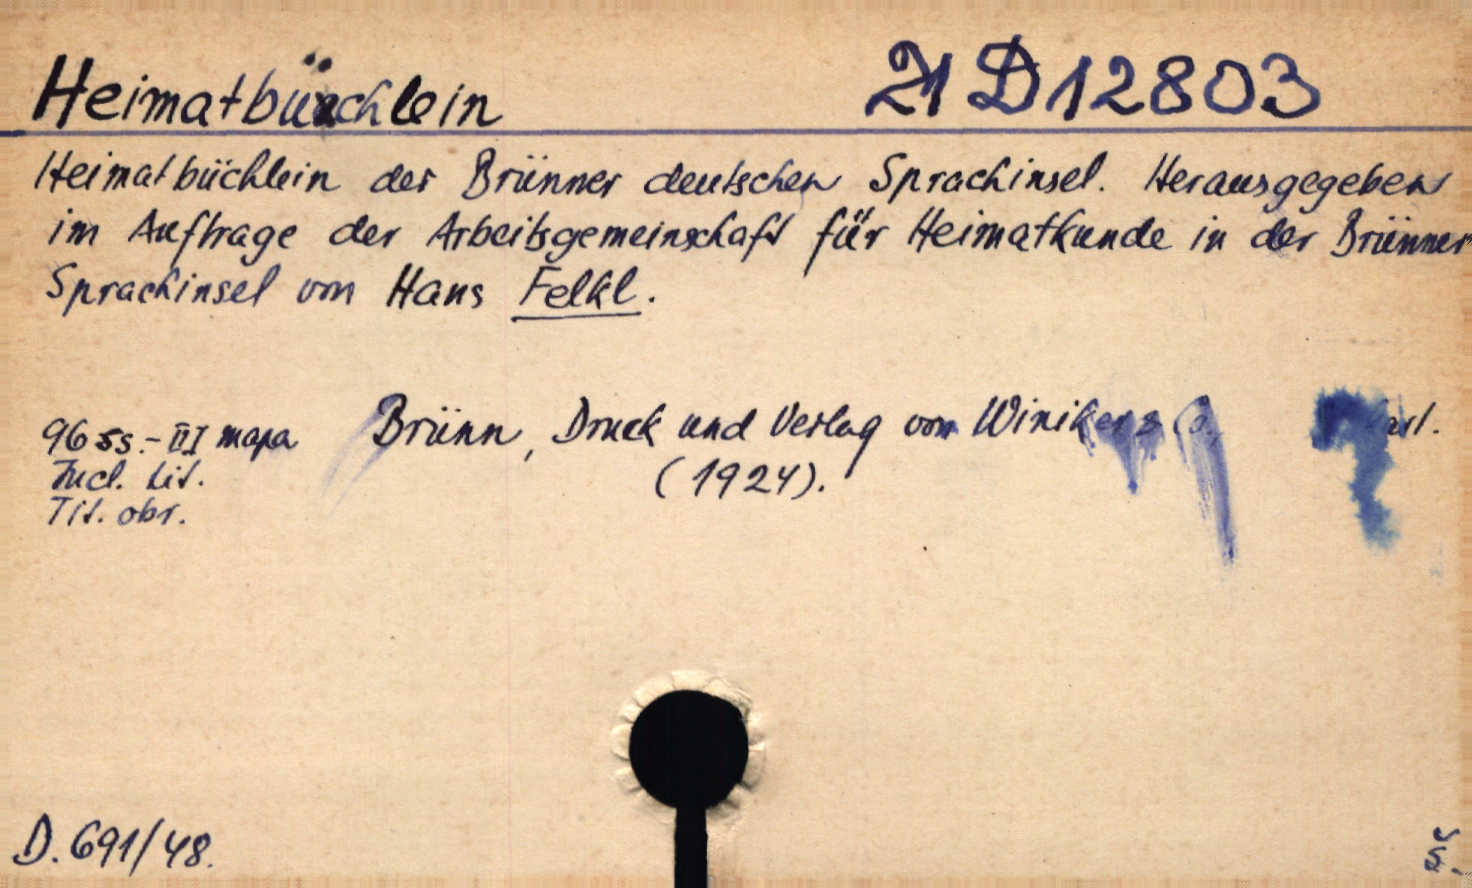 Heimatbüchlein 21 D 12803
Heimatbüchlein der Brünner deutschen Sprachinsel. Herausgegeben
im Auftrage der Arbeitsgemeinschaft für Heimatkunde in der Brünner
Sprachinsel von Hans Felkl.
96 ss. - III mapa Brünn, Druck und Verlag von Winiker
Incl. Lit. (1924).
Tit. obr.
D. 691/48.
Š.